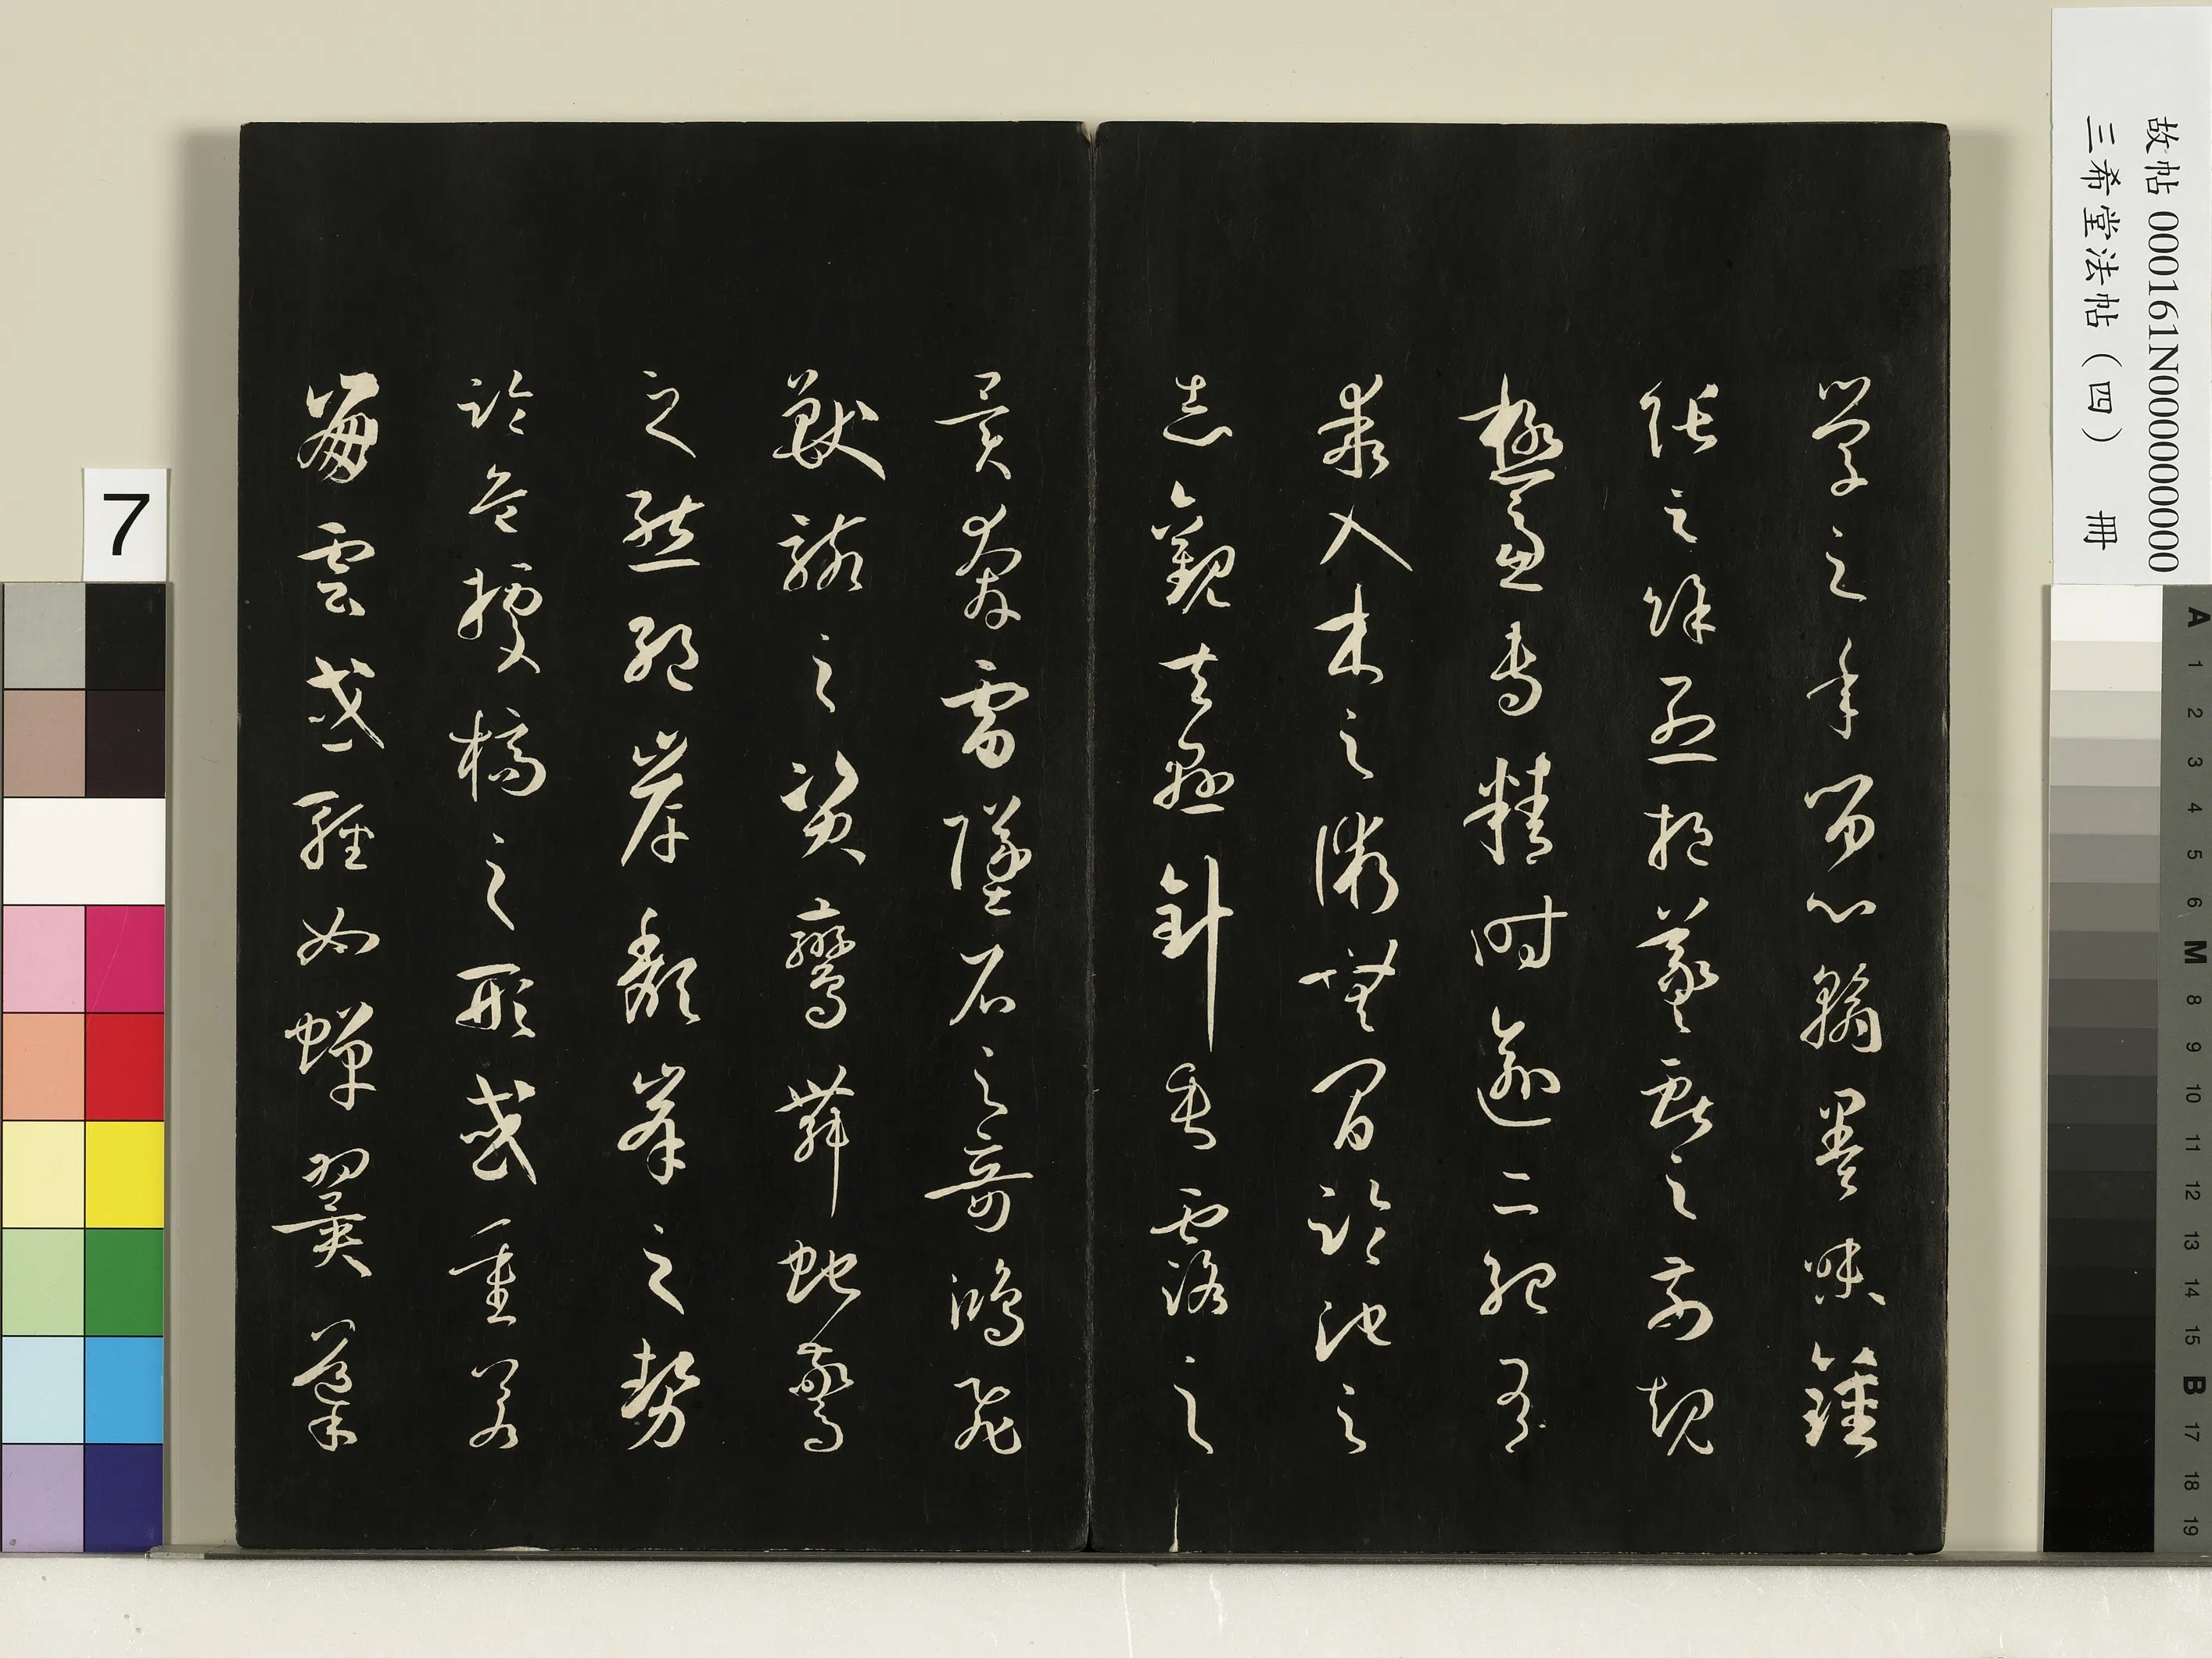 故帖 000161N000000000
三希堂法帖（四） 冊
學之年留心翰墨味鍾
張之餘烈挹羲獻之前規
極慮專精時逾二紀有
乖入木之術無間臨池之
志觀夫懸針垂露之
異奔雷墜石之奇鴻飛
獸駭之資鸞舞蛇驚
之態絕岸頹峯之勢
臨危據槁之形或重若
崩雲或輕如蟬翼導
7
A 1 2 3 4 5 6 M 8 9 10 11 12 13 14 15 B 17 18 19